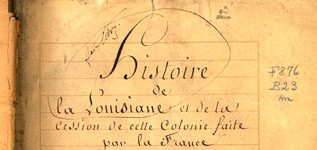 Histoire
de
la Louisiane et de la
cession de cette Colonie faite
par la France
F876
B23
m